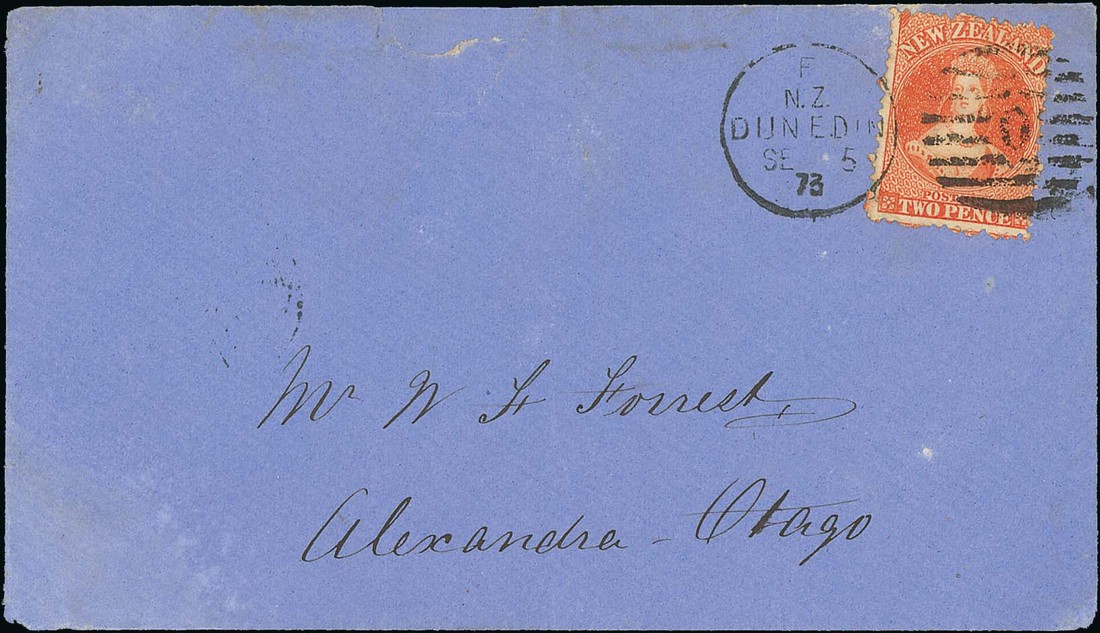 F
N.Z.
DUNEDIN
SE 5
73
NEW ZEALAND
POST
TWO PENCE
Mr W F Forrest
Alexandra - Otago